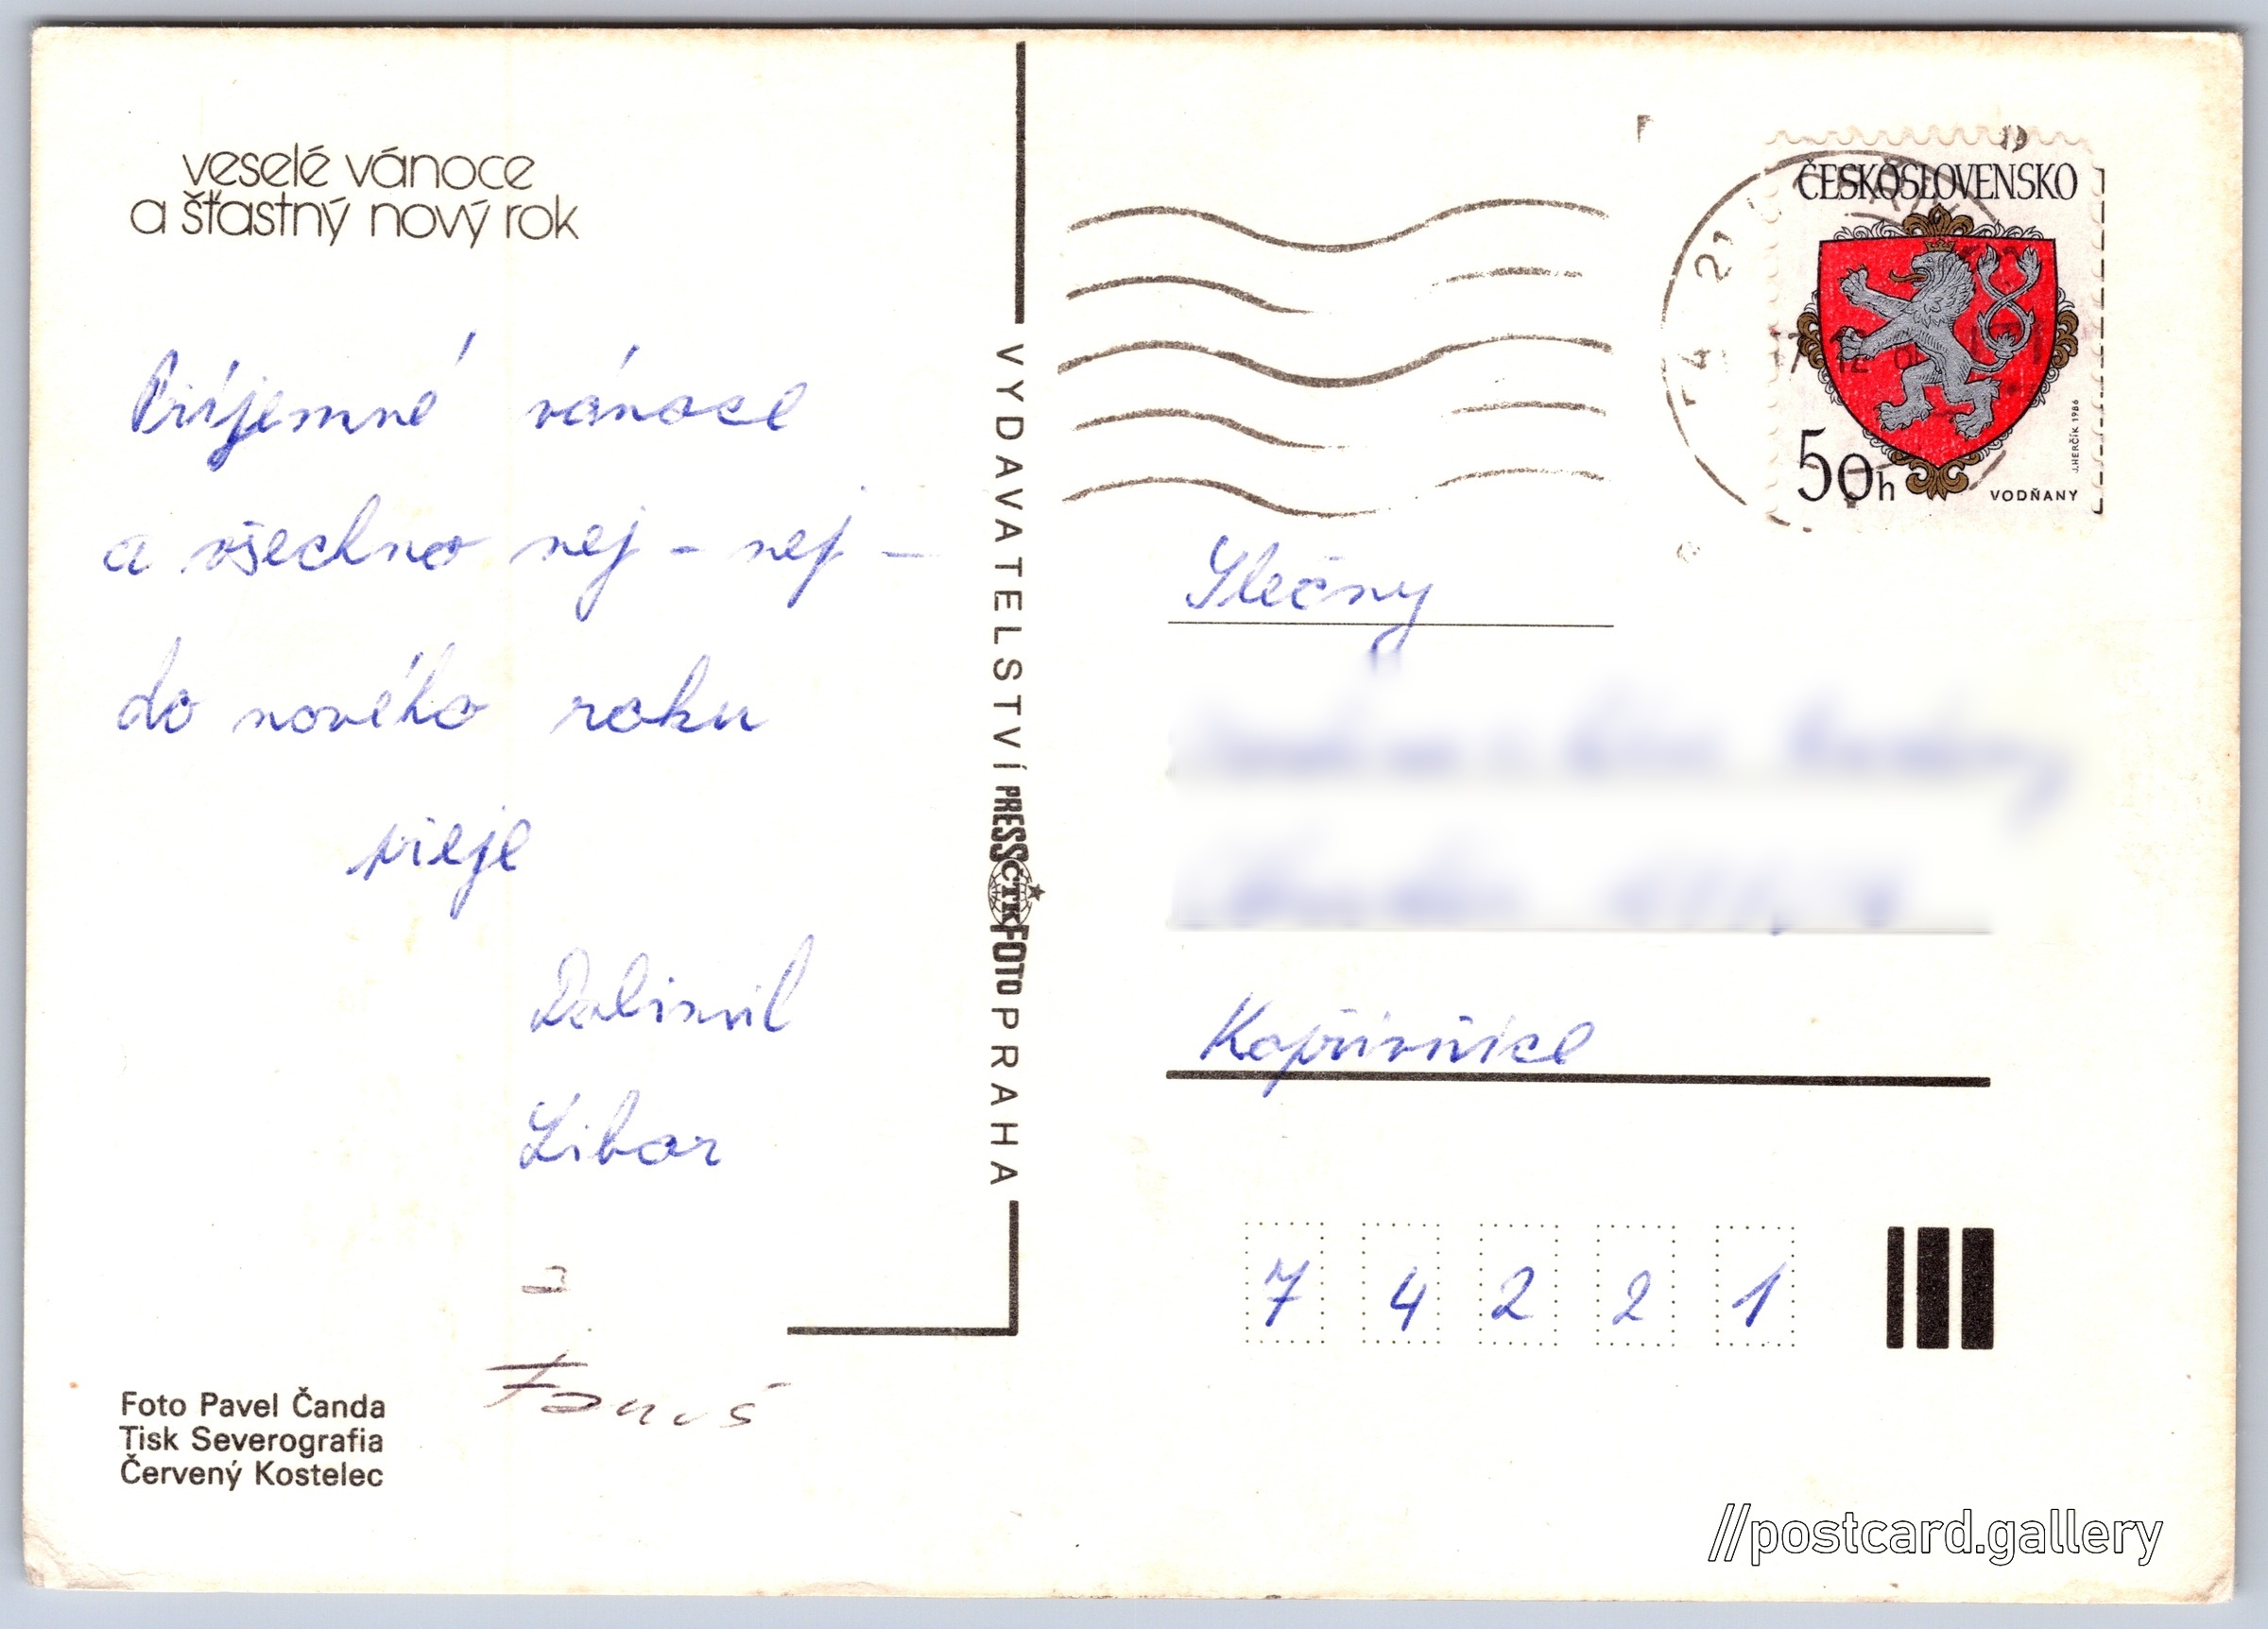 veselé vánoce
a šťastný nový rok
Příjemné vánoce
a všechno nej - nej -
do nového roku
přeje
Dalimil
Libor
a
Fanuš
Foto Pavel Čanda
Tisk Severografia
Červený Kostelec
VYDAVATELSTVÍ PRESSFOTO PRAHA
ČTK
ČESKOSLOVENSKO
50h
VODŇANY
J. HERČÍK 1986
74221
Slečny
Kopřivnice
7 4 2 2 1
//postcard.gallery